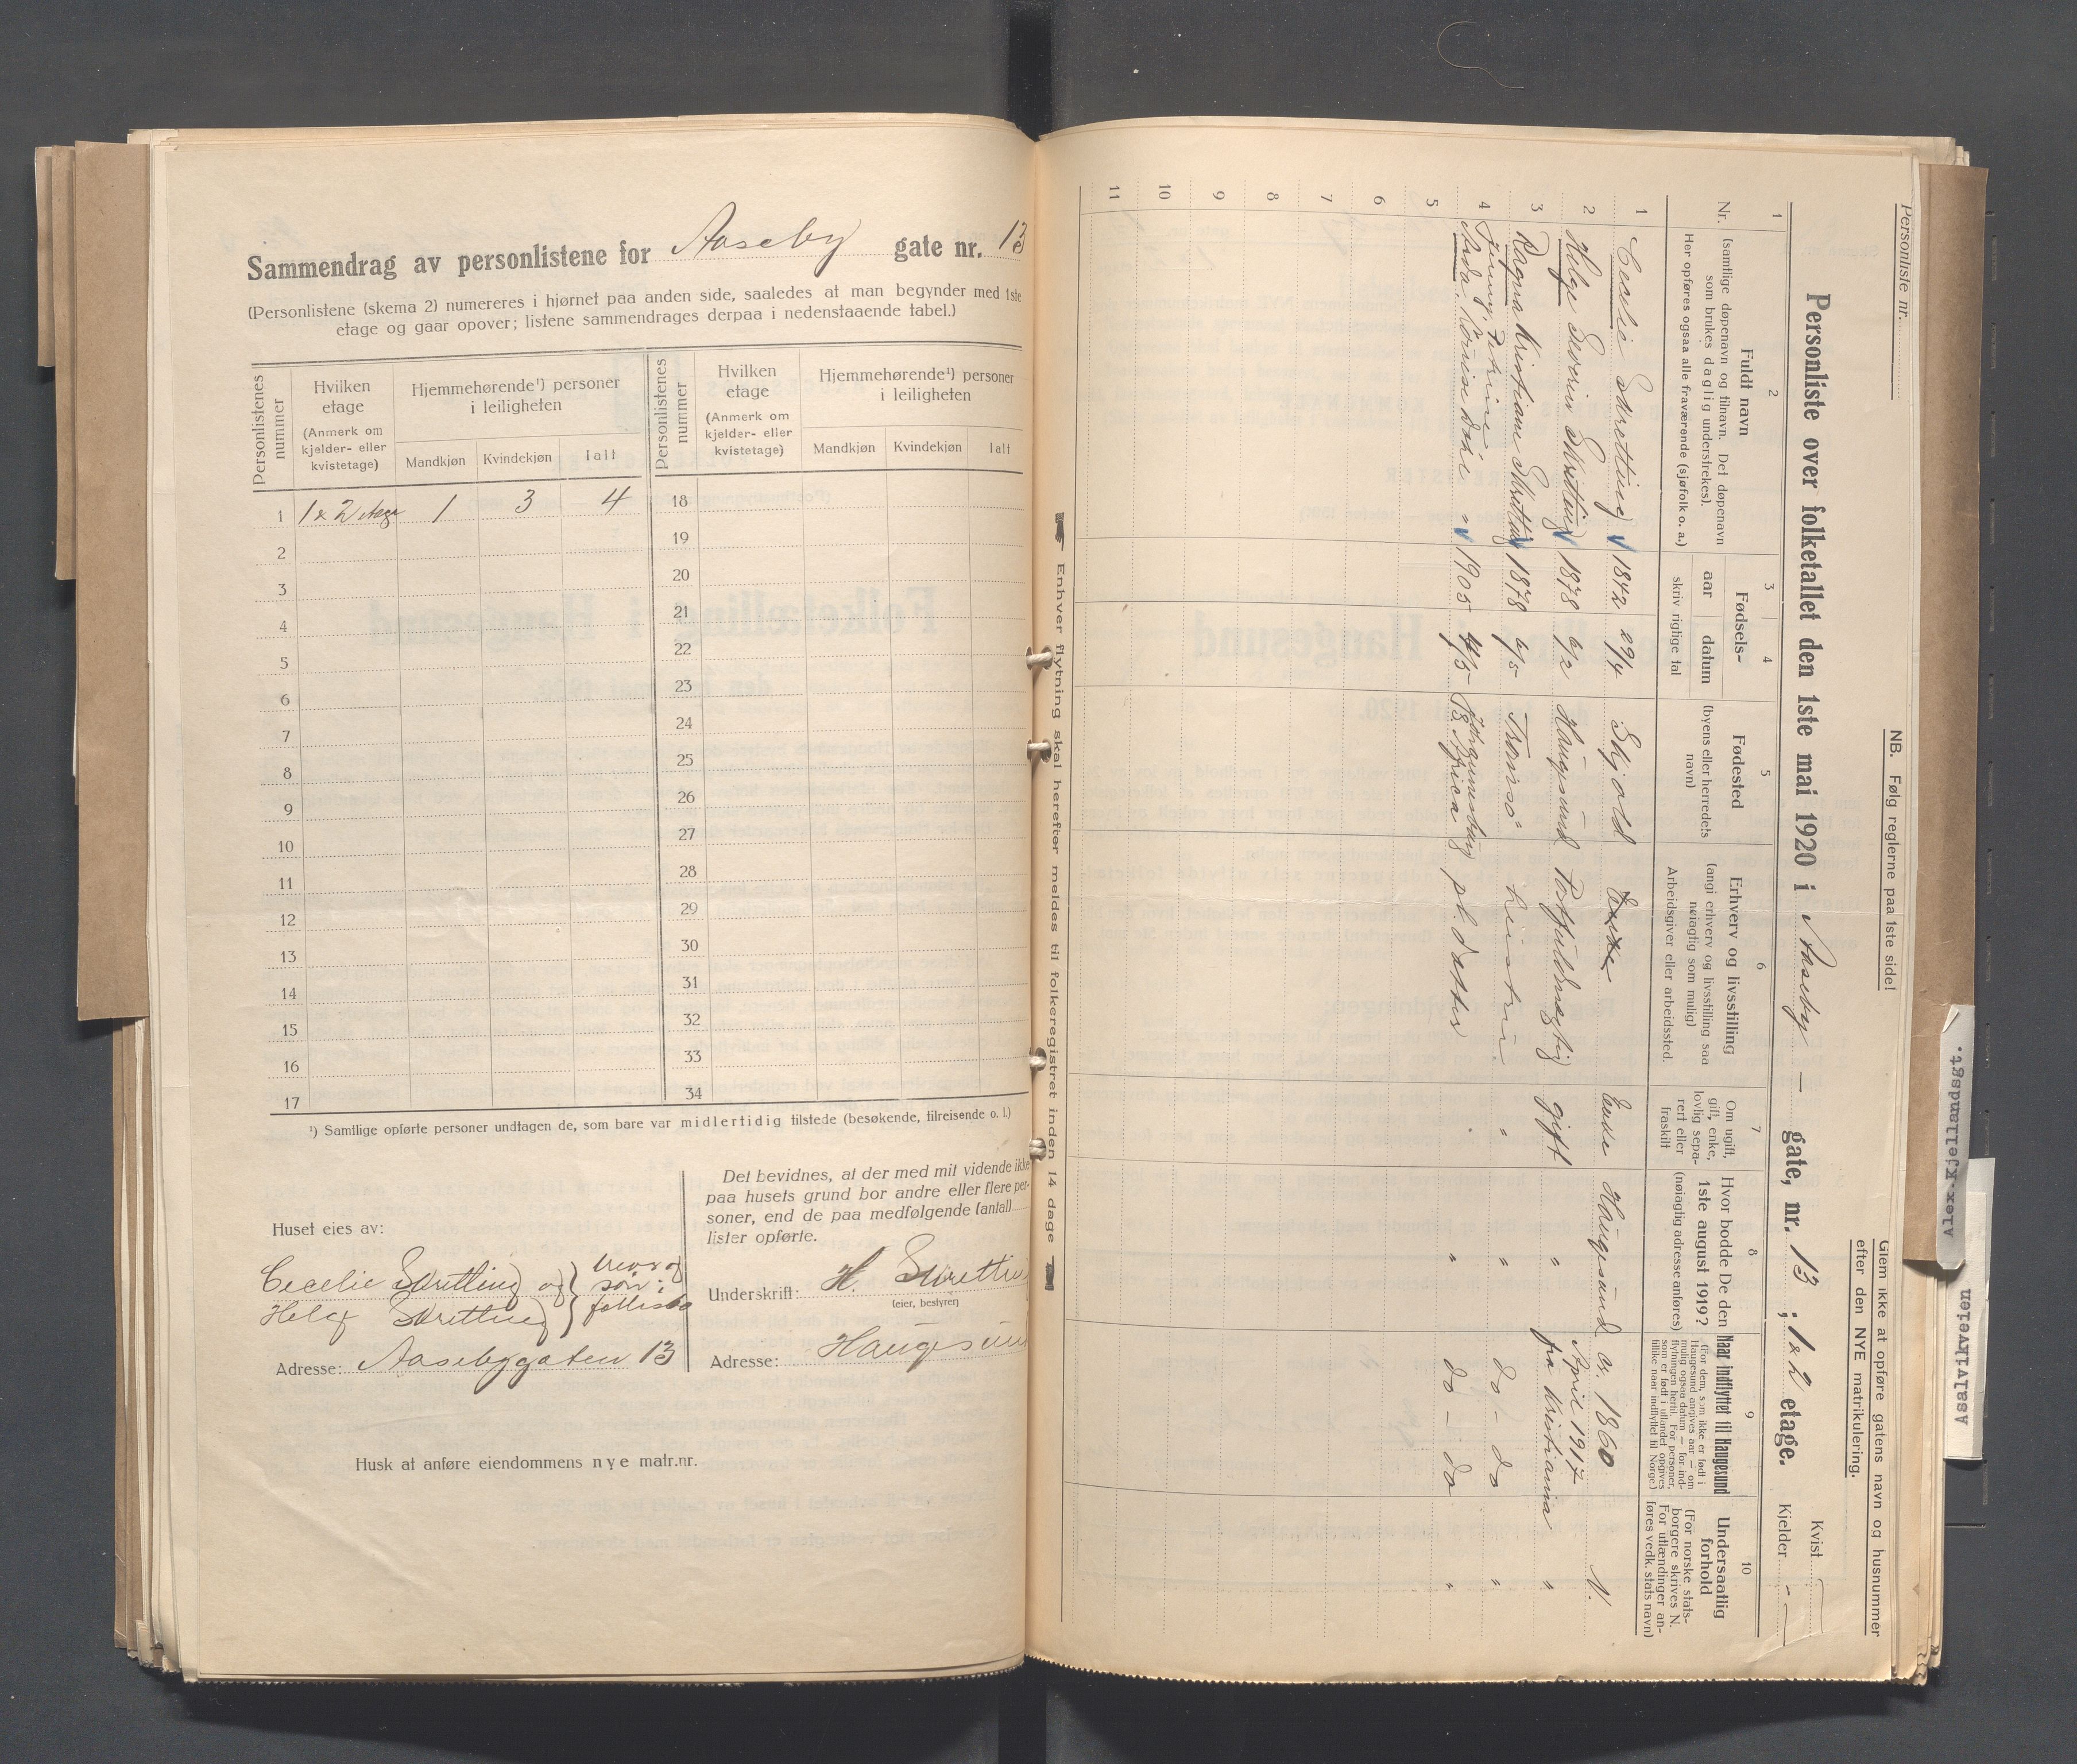 Sammendrag av personlistene for Aaseby gate nr. 13
(Personlistene (skema 2) numereres i hjørnet paa anden side, saaledes at man begynder med 1ste
etage og gaar opover; listene sammendrages derpaa i nedenstaaende tabel.)
Personlistenes nummer
Hvilken etage
(Anmerk om kjelder- eller kvistetage)
Hjemmehørende¹) personer i leiligheten
Mandkjøn Kvindekjøn Ialt
Personlistenes nummer
Hvilken etage
(Anmerk om kjelder- eller kvistetage)
Hjemmehørende¹) personer i leiligheten
Mandkjøn Kvindekjøn Ialt
1 1 & 2 etage 1 3 4 18
2 19
3 20
4 21
5 22
6 23
7 24
8 25
9 26
10 27
11 28
12 29
13 30
14 31
15 32
16 33
17 34
¹) Samtlige opførte personer undtagen de, som bare var midlertidig tilstede (besøkende, tilreisende o. l.)
Huset eies av:
Cecelie Skretting og
Helge Skretting
mor og
søn i
Adresse: Aasebygaten 13
Det bevidnes, at der med mit vidende ikke
paa husets grund bor andre eller flere per-
soner, end de paa medfølgende (antall)
lister opførte.
Underskrift: H. Skretting
(eier, bestyrer)
Adresse: Haugesund
Husk at anføre eiendommens nye matr.nr.
Enhver flytning skal herefter meldes til folkeregistret inden 14 dage
Personliste nr.
NB. Følg reglerne paa 1ste side!
Glem ikke at opføre gatens navn og husnummer
efter den NYE matrikulering.
Personliste over folketallet den 1ste mai 1920 i Aaseby — gate, nr. 13 ; 1 & 2 etage.
Kvist —
Kjelder - —
1 2 3 4 5 6 7 8 9 10
Nr.
Fuldt navn
(samtlige døpenavn og tilnavn. Det døpenavn
som brukes daglig understrekes).
Her opføres ogsaa alle fraværende (sjøfolk o. a.)
Fødsels-
aar datum
skriv rigtige tal
Fødested
(byens eller herredets
navn)
Erhverv og livsstilling
(angi erhverv og livsstilling saa
nøiagtig som mulig)
Arbeidsgiver eller arbeidssted.
Om ugift,
gift, enke,
lovlig sepa-
rert eller
fraskilt
Hvor bodde De den
1ste august 1919?
(nøiagtig adresse anføres)
Naar indflyttet til Haugesund
(For dem, som ikke er født i
Haugesund angives aar — om
mulig ogsaa datum — for ind-
flytningen hertil. For personer,
som er født i utlandet opgives
tillike naar indflyttet til Norge)
Undersaatlig
forhold
(For norske stats-
borgere skrives N.
For utlændinger an-
føres vedk. stats navn)
1 Cecelie Skretting 1842 29/4 Skjold Enke Enke Haugesund ca. 1860 N.
2 Helge Severin Skretting 1878 6/2 Haugesund Potfuldmægtig gift " April 1917 fra Kristiania "
3 Ragna Kristiane Skretting 1878 6/5 Tromsø hustru " " do - do "
4 Jenny, Aida, Louise 1905 4/5 Johannesburg S. Africa pl. datter " " do - do "
5
6
7
8
9
10
11
Alex. Kjellandsgt.
Asalvikveien